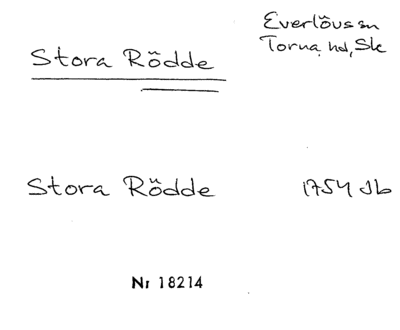 Everlövs sn
Torna hd, Sk
Stora Rödde
Stora Rödde 1754 Jb
Nr 18214